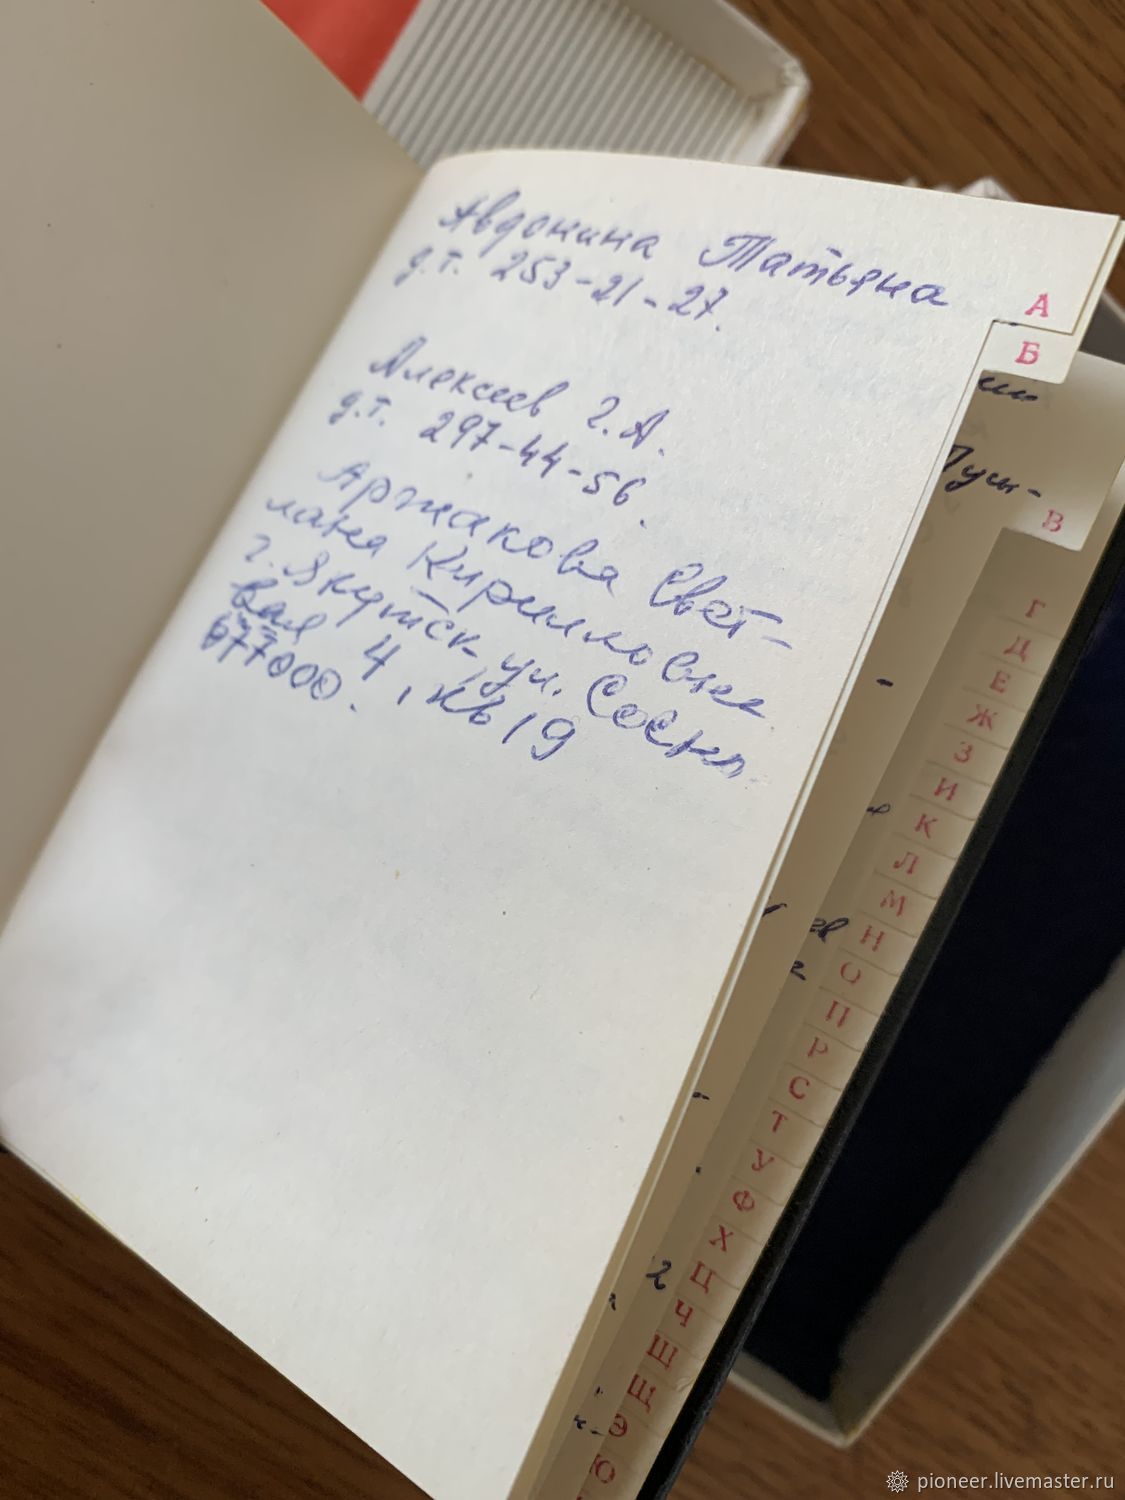 Авдонина Татьяна
д.т. 253-21-27.
Алексеев Г.А.
д.т. 297-44-56.
Аржакова Свет-
лана Кирилловна
г. Якутск, ул. Сосно-
вая 4, кв 19
677000.
А
Б
Пуш-
В
Г
Д
Е
Ж
З
И
К
Л
М
Н
О
П
Р
С
Т
У
Ф
Х
Ц
Ч
Ш
Щ
Э
Ю
pioneer.livemaster.ru